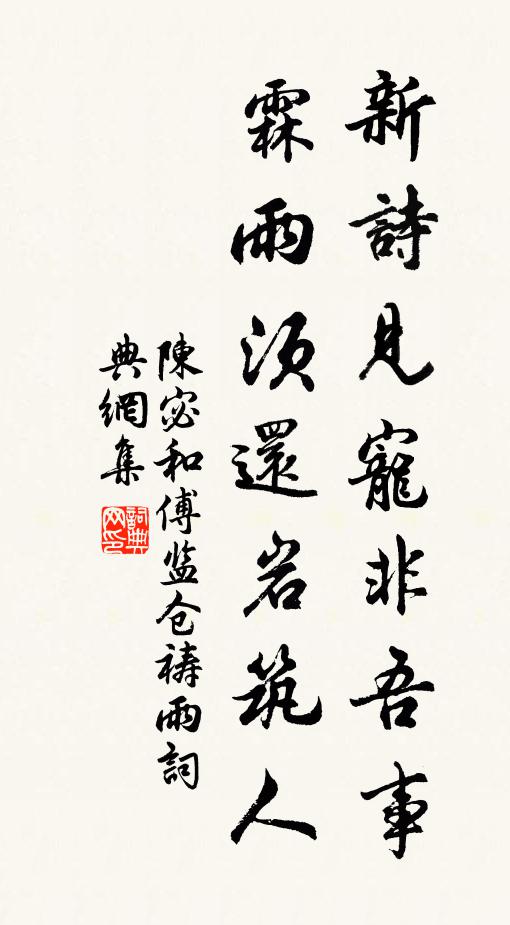 新詩見寵非吾事
霖雨須還岩筑人
陳宓和傅监仓禱雨詞
典網集
詞典網印